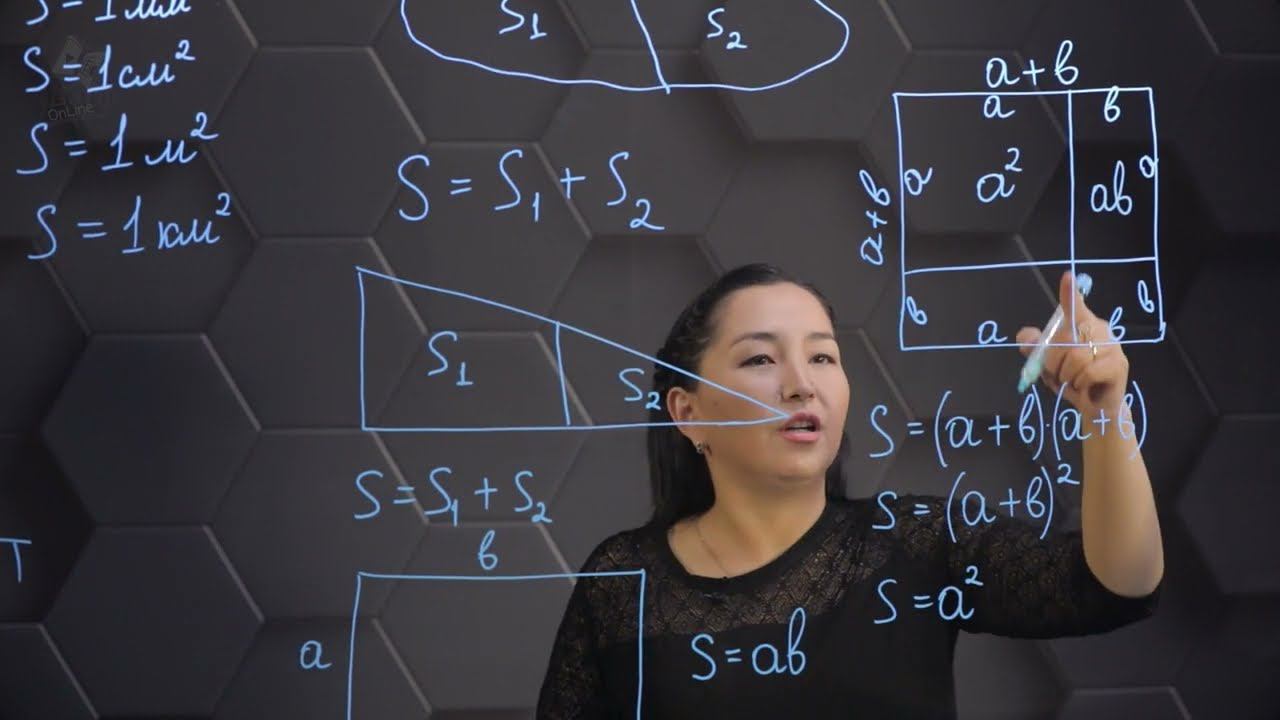 S = 1 мм
S = 1 см²
S = 1 м²
S = 1 км²
OnLine
S₁
S₂
S = S₁ + S₂
S₁
S₂
S = S₁ + S₂
в
a
S = aв
a + в
a
в
a + в
a
a²
aв
a
в
a
в
в
S = (a + в)·(a + в)
S = (a + в)²
S = a²
T